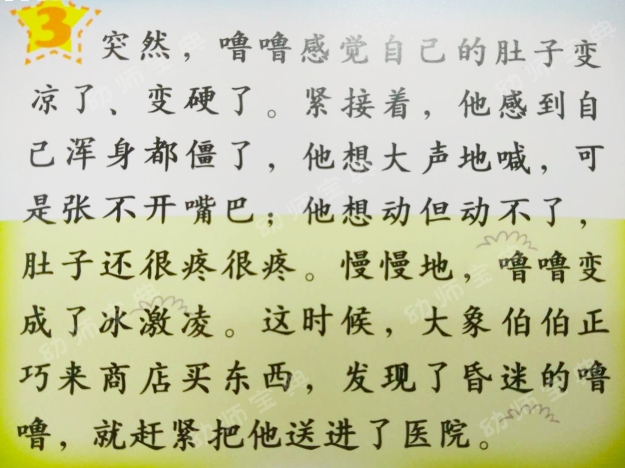 3
突然，噜噜感觉自己的肚子变
凉了、变硬了。紧接着，他感到自
己浑身都僵了，他想大声地喊，可
是张不开嘴巴；他想动但动不了，
肚子还很疼很疼。慢慢地，噜噜变
成了冰激凌。这时候，大象伯伯正
巧来商店买东西，发现了昏迷的噜
噜，就赶紧把他送进了医院。
幼师宝典